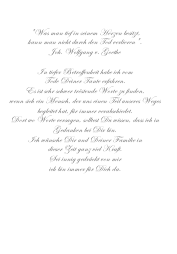 "Was man tief in seinem Herzen besitzt,
kann man nicht durch den Tod verlieren".
Joh. Wolfgang v. Goethe
In tiefer Betroffenheit habe ich vom
Tode Deiner Tante erfahren.
Es ist sehr schwer tröstende Worte zu finden,
wenn sich ein Mensch, der uns einen Teil unseres Weges
begleitet hat, für immer verabschiedet.
Dort wo Worte versagen, solltest Du wissen, dass ich in
Gedanken bei Dir bin.
Ich wünsche Dir und Deiner Familie in
dieser Zeit ganz viel Kraft.
Sei innig gedrückt von mir
ich bin immer für Dich da.